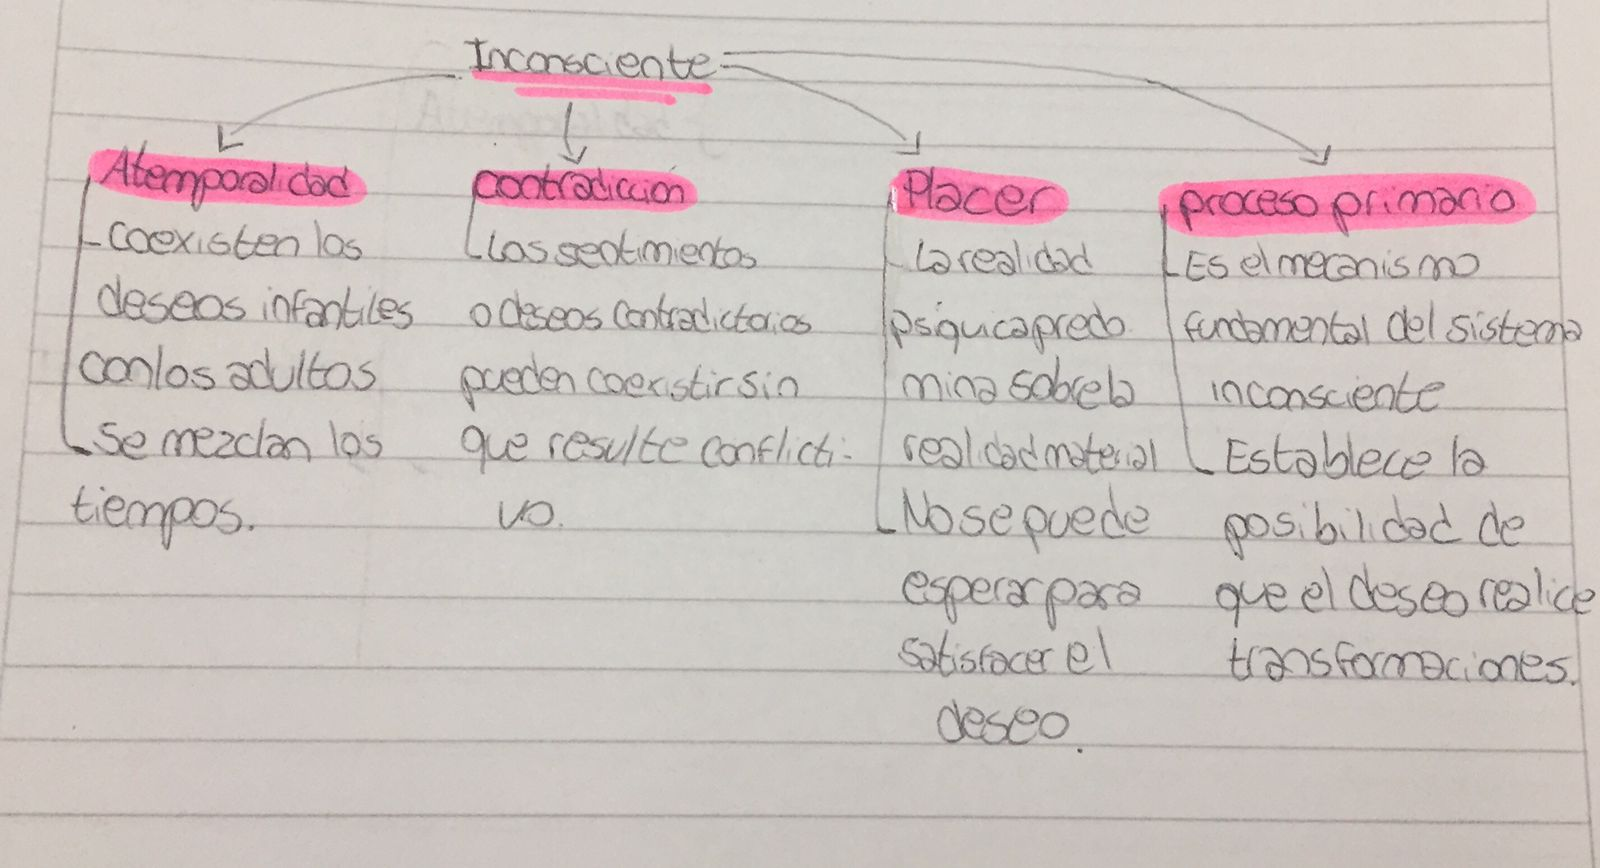 Inconsciente
Atemporalidad
-coexisten los
deseos infantiles
con los adultos
-se mezclan los
tiempos.
contradicción
-Los sentimientos
o deseos contradictorios
pueden coexistir sin
que resulte conflicti-
vo.
Placer
-La realidad
psiquica predo
mina sobre la
realidad material
-No se puede
esperar para
satisfacer el
deseo.
proceso primario
-Es el mecanismo
fundamental del sistema
inconsciente
-Establece la
posibilidad de
que el deseo realice
transformaciones.